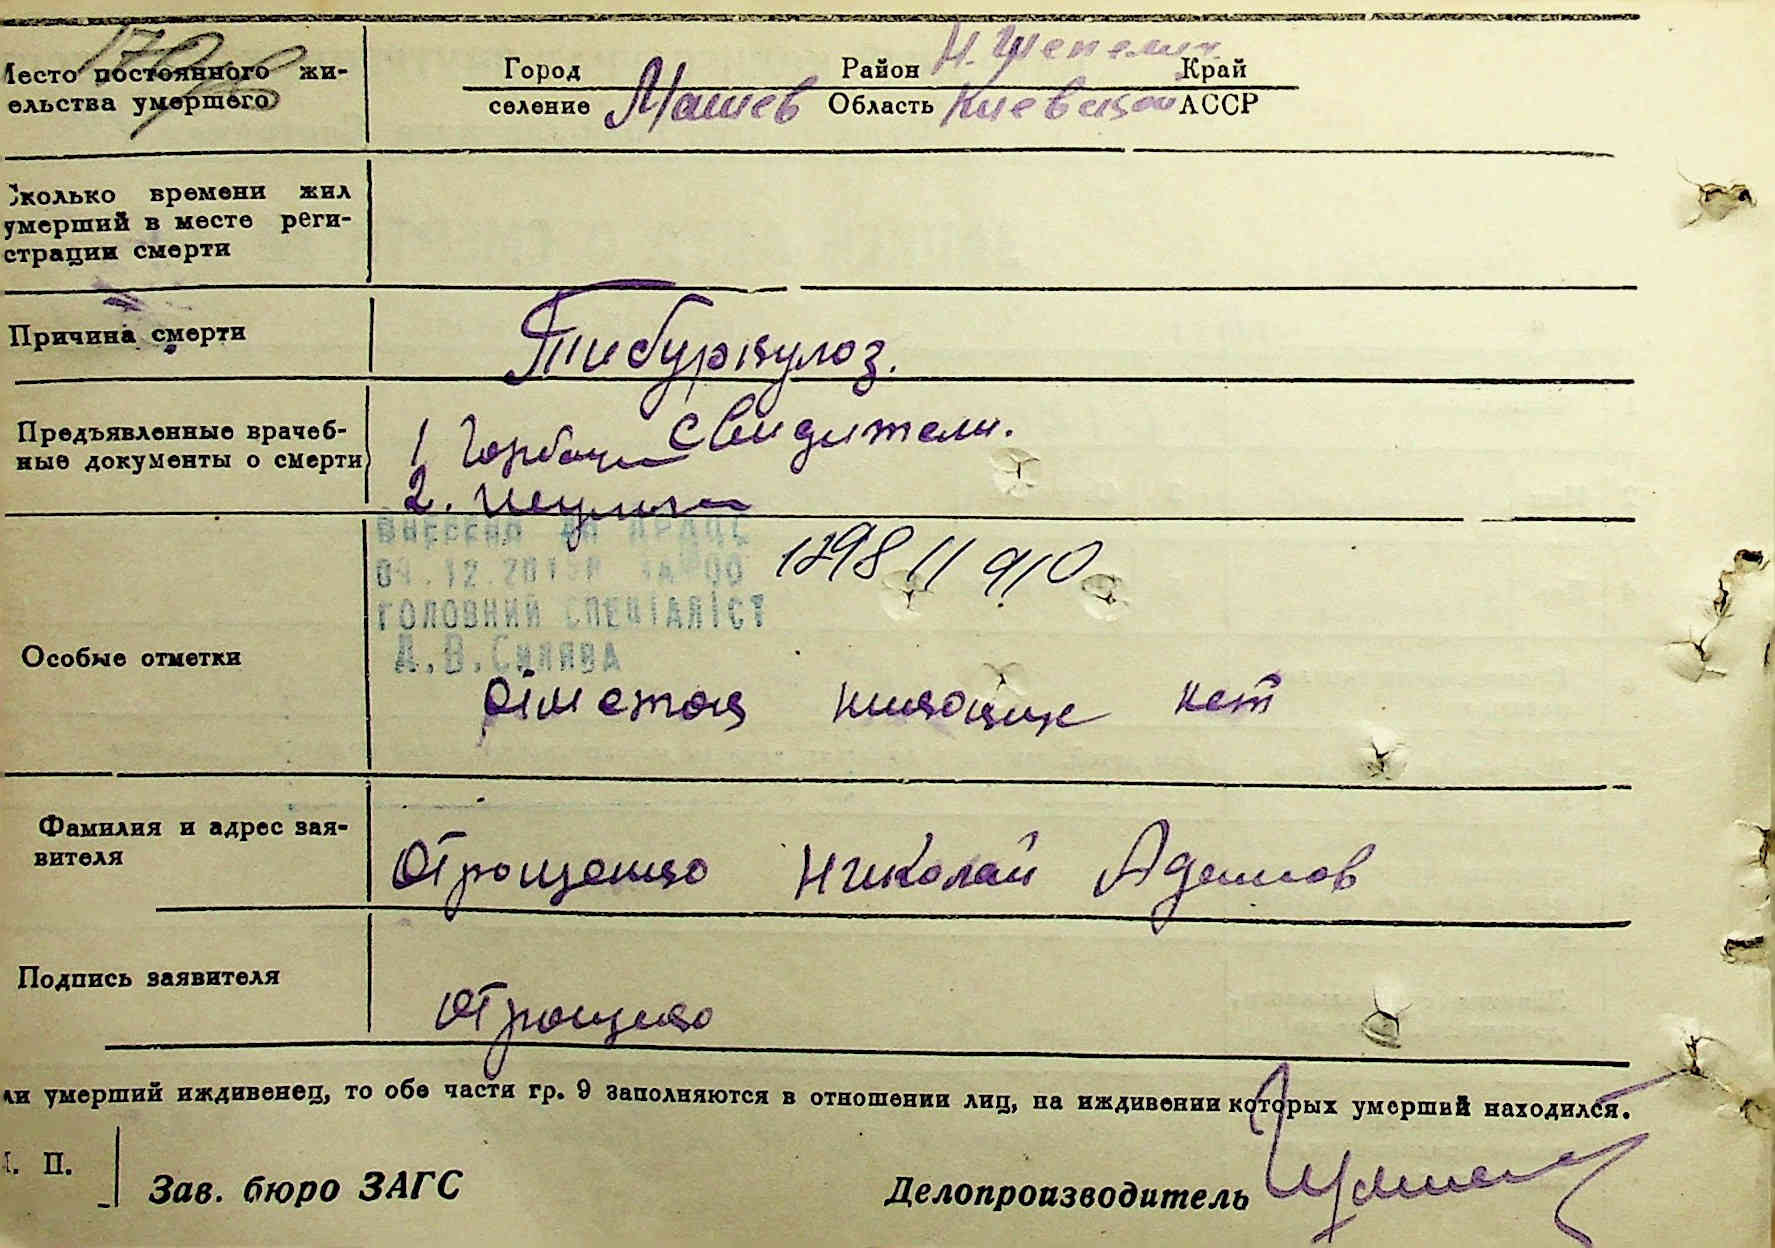 Место постоянного жи-
ельства умершего
Город
Район Н. Шепелич
Край
селение Машев Область Киевской АССР
Сколько времени жил
умерший в месте реги-
страции смерти
Причина смерти
Тибуркулоз.
Предъявленные врачеб-
ные документы о смерти
1 Горбач свидители.
2.
Внесено до ДРАЦС
ГОЛОВНИЙ СПЕЦІАЛІСТ
1298 11 910
Особые отметки
отметок никоких нет
Фамилия и адрес зая-
вителя
Отрощенко Николай Адамов
Подпись заявителя
Отрощенко
ли умерший иждивенец, то обе части гр. 9 заполняются в отношении лиц, на иждивении которых умерший находился.
П.
Зав. бюро ЗАГС
Делопроизводитель